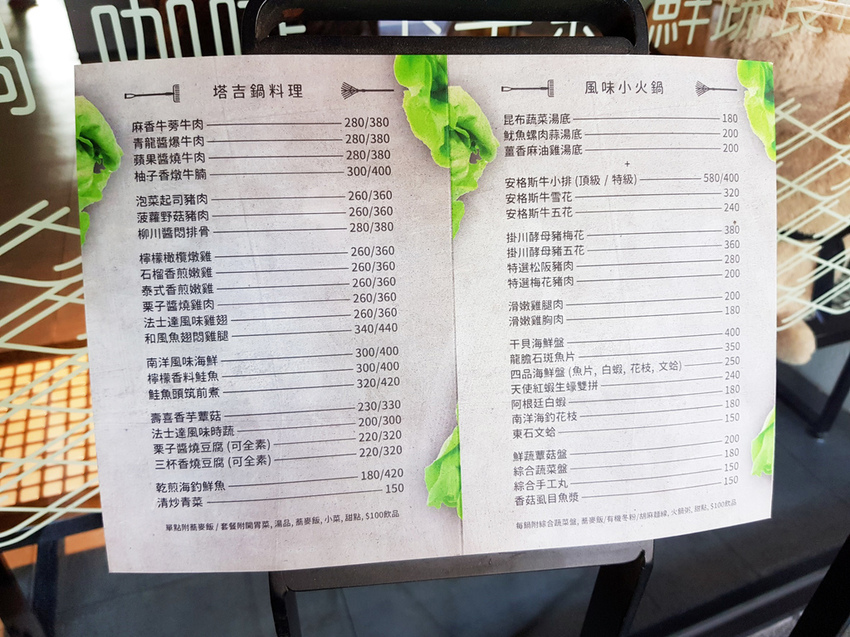 鍋 咖
鮮蔬食
塔吉鍋料理
麻香牛蒡牛肉 280/380
青龍醬爆牛肉 280/380
蘋果醬燒牛肉 280/380
柚子香燉牛腩 300/400
泡菜起司豬肉 260/360
菠蘿野菇豬肉 260/360
柳川醬悶排骨 280/380
檸檬橄欖燉雞 260/360
石榴香煎嫩雞 260/360
泰式香煎嫩雞 260/360
栗子醬燒雞肉 260/360
法士達風味雞翅 260/360
和風魚翅悶雞腿 340/440
南洋風味海鮮 300/400
檸檬香料鮭魚 300/400
鮭魚頭筑前煮 320/420
壽喜香芋蕈菇 230/330
法士達風味時蔬 200/300
栗子醬燒豆腐 (可全素) 220/320
三杯香燒豆腐 (可全素) 220/320
乾煎海釣鮮魚 180/420
清炒青菜 150
單點附蕎麥飯 / 套餐附開胃菜, 湯品, 蕎麥飯, 小菜, 甜點, $100飲品
風味小火鍋
昆布蔬菜湯底 180
魷魚螺肉蒜湯底 200
薑香麻油雞湯底 200
+
安格斯牛小排 (頂級 / 特級) 580/400
安格斯牛雪花 320
安格斯牛五花 240
掛川酵母豬梅花 380
掛川酵母豬五花 360
特選松阪豬肉 280
特選梅花豬肉 200
滑嫩雞腿肉 200
滑嫩雞胸肉 180
干貝海鮮盤 400
龍膽石斑魚片 350
四品海鮮盤 (魚片, 白蝦, 花枝, 文蛤) 250
天使紅蝦生蠔雙拼 240
阿根廷白蝦 180
南洋海釣花枝 180
東石文蛤 150
鮮蔬蕈菇盤 200
綜合蔬菜盤 180
綜合手工丸 150
香菇虱目魚漿 150
每鍋附綜合蔬菜盤, 蕎麥飯/有機冬粉/胡麻麵線, 火鍋粥, 甜點, $100飲品